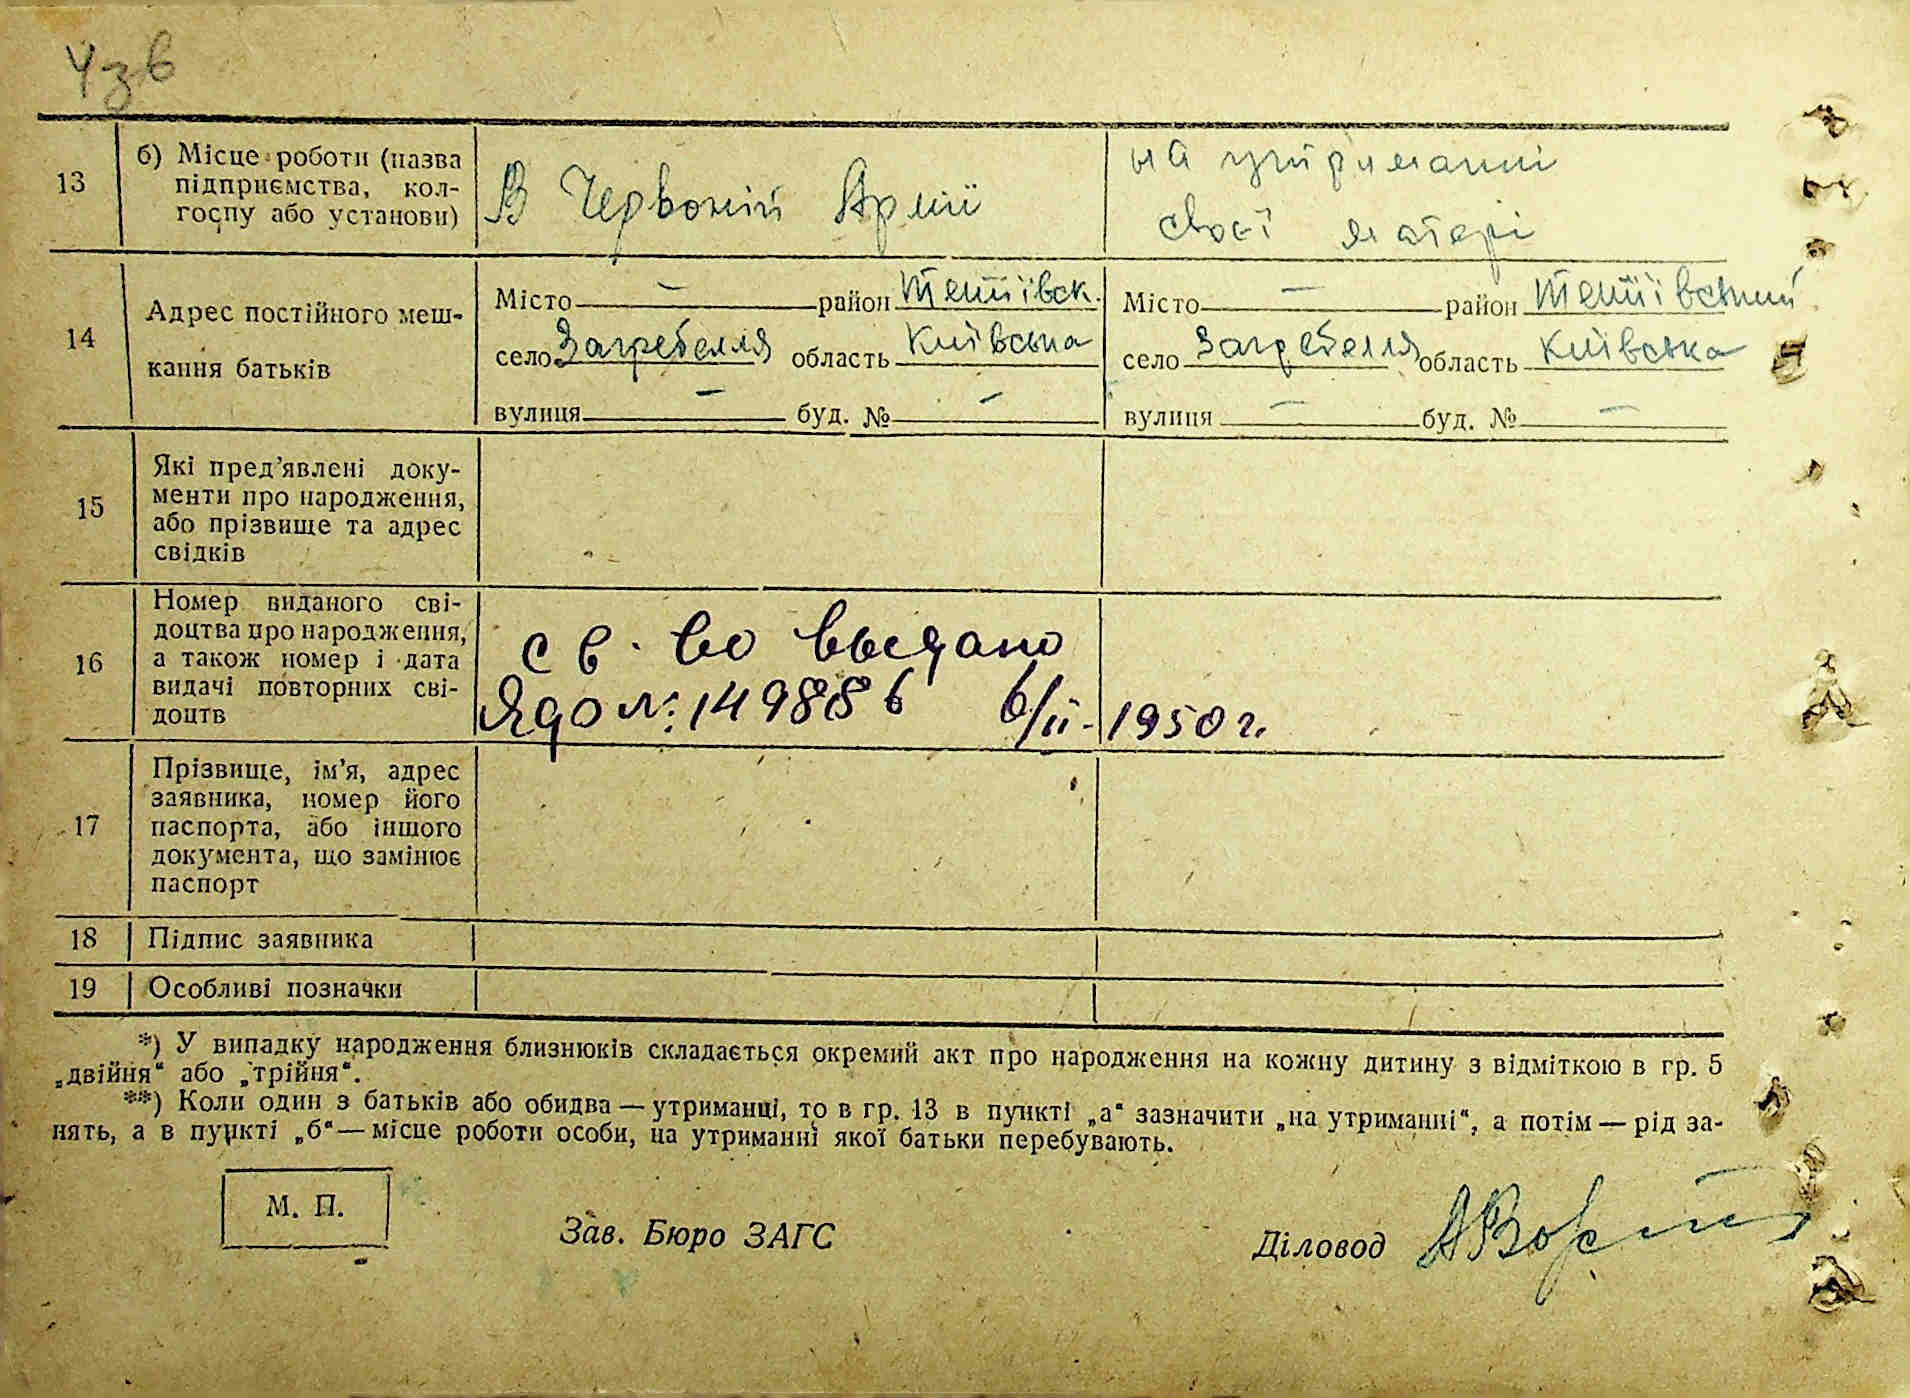 436
13 б) Місце роботи (назва підприємства, колгоспу або установи) В Червоній Армії на утриманні своєї матері
14 Адрес постійного мешкання батьків
Місто — район Тетіївськ. Місто — район Тетіївський
село Загребелля область Київська село Загребелля область Київська
вулиця — буд. № — вулиця — буд. № —
15 Які пред'явлені доку-
менти про народження,
або прізвище та адрес
свідків
16 Номер виданого сві-
доцтва про народження,
а також номер і дата
видачі повторних сві-
доцтв
св. во выдано
ЯЦО №: 149886 6/II - 1950 г.
17 Прізвище, ім'я, адрес
заявника, номер його
паспорта, або іншого
документа, що замінює
паспорт
18 Підпис заявника
19 Особливі позначки
*) У випадку народження близнюків складається окремий акт про народження на кожну дитину з відміткою в гр. 5
„двійня“ або „трійня“.
**) Коли один з батьків або обидва — утриманці, то в гр. 13 в пункті „а“ зазначити „на утриманні“, а потім — рід за-
нять, а в пункті „б“ — місце роботи особи, на утриманні якої батьки перебувають.
М. П.
Зав. Бюро ЗАГС Діловод